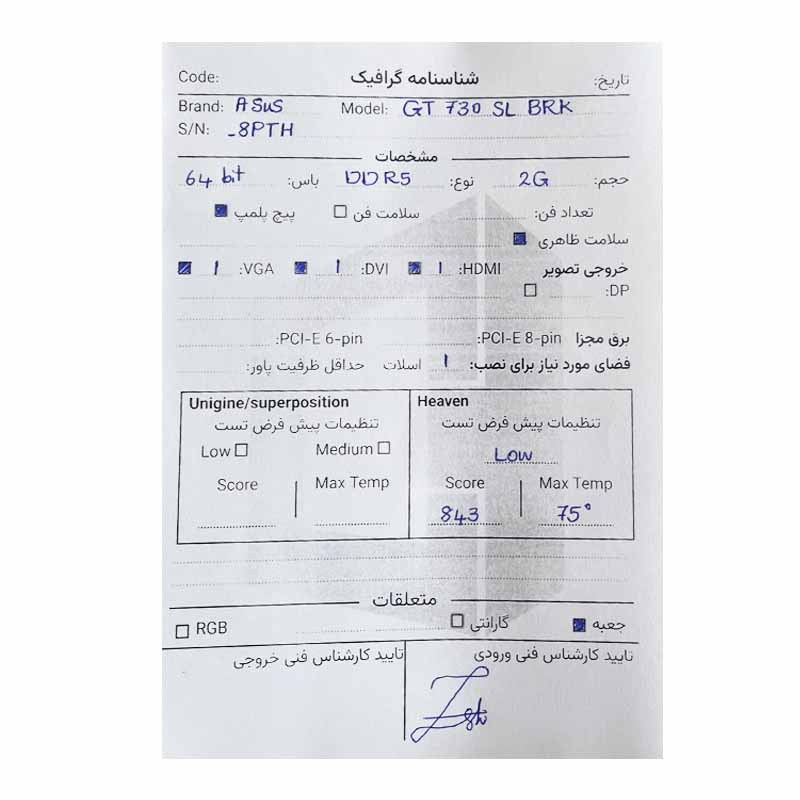 تاریخ: شناسنامه گرافیک Code:
Brand: ASUS Model: GT 730 SL BRK
S/N: _8PTH
مشخصات
حجم: 2G نوع: DDR5 باس: 64 bit
تعداد فن: سلامت فن پیچ پلمپ
سلامت ظاهری
خروجی تصویر HDMI: 1 DVI: 1 VGA: 1
DP:
برق مجزا PCI-E 8-pin: PCI-E 6-pin:
فضای مورد نیاز برای نصب: 1 اسلات حداقل ظرفیت پاور:
Unigine/superposition Heaven
تنظیمات پیش فرض تست تنظیمات پیش فرض تست
Low Medium Low
Score Max Temp Score Max Temp
843 75°
متعلقات
جعبه گارانتی RGB
تایید کارشناس فنی ورودی تایید کارشناس فنی خروجی